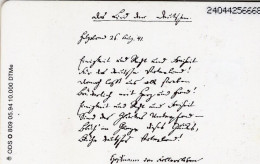 Das Lied der Deutschen
Helgoland 26 Aug. 41
Einigkeit und Recht und Freiheit
für das deutsche Vaterland!
Danach laßt uns alle streben
brüderlich mit Herz und Hand!
Einigkeit und Recht und Freiheit
Sind des Glückes Unterpfand –
Blüh im Glanze dieses Glückes,
Blühe deutsches Vaterland.
Hoffmann von Fallersleben
24044256668
® ODS O 809 05.94 10.000 DTMe